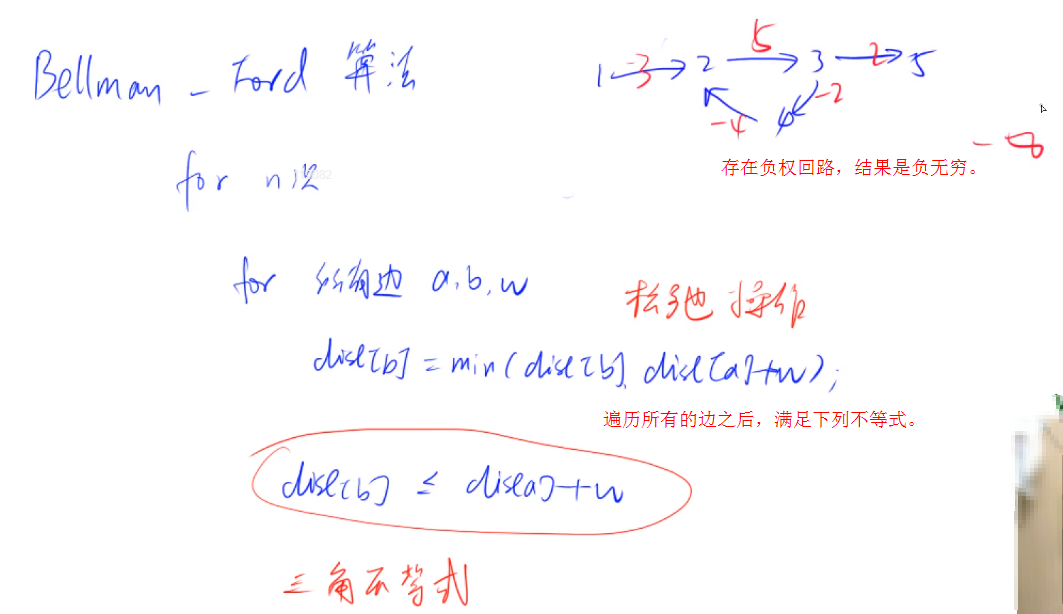 Bellman - Ford 算法
for n次
for 所有边 a,b,w
dist[b] = min(dist[b], dist[a]+w);
松弛操作
遍历所有的边之后，满足下列不等式。
dist[b] ≤ dist[a]+w
三角不等式
1 -3 2 5 3 2 5
-4 4 -2
-∞
存在负权回路，结果是负无穷。